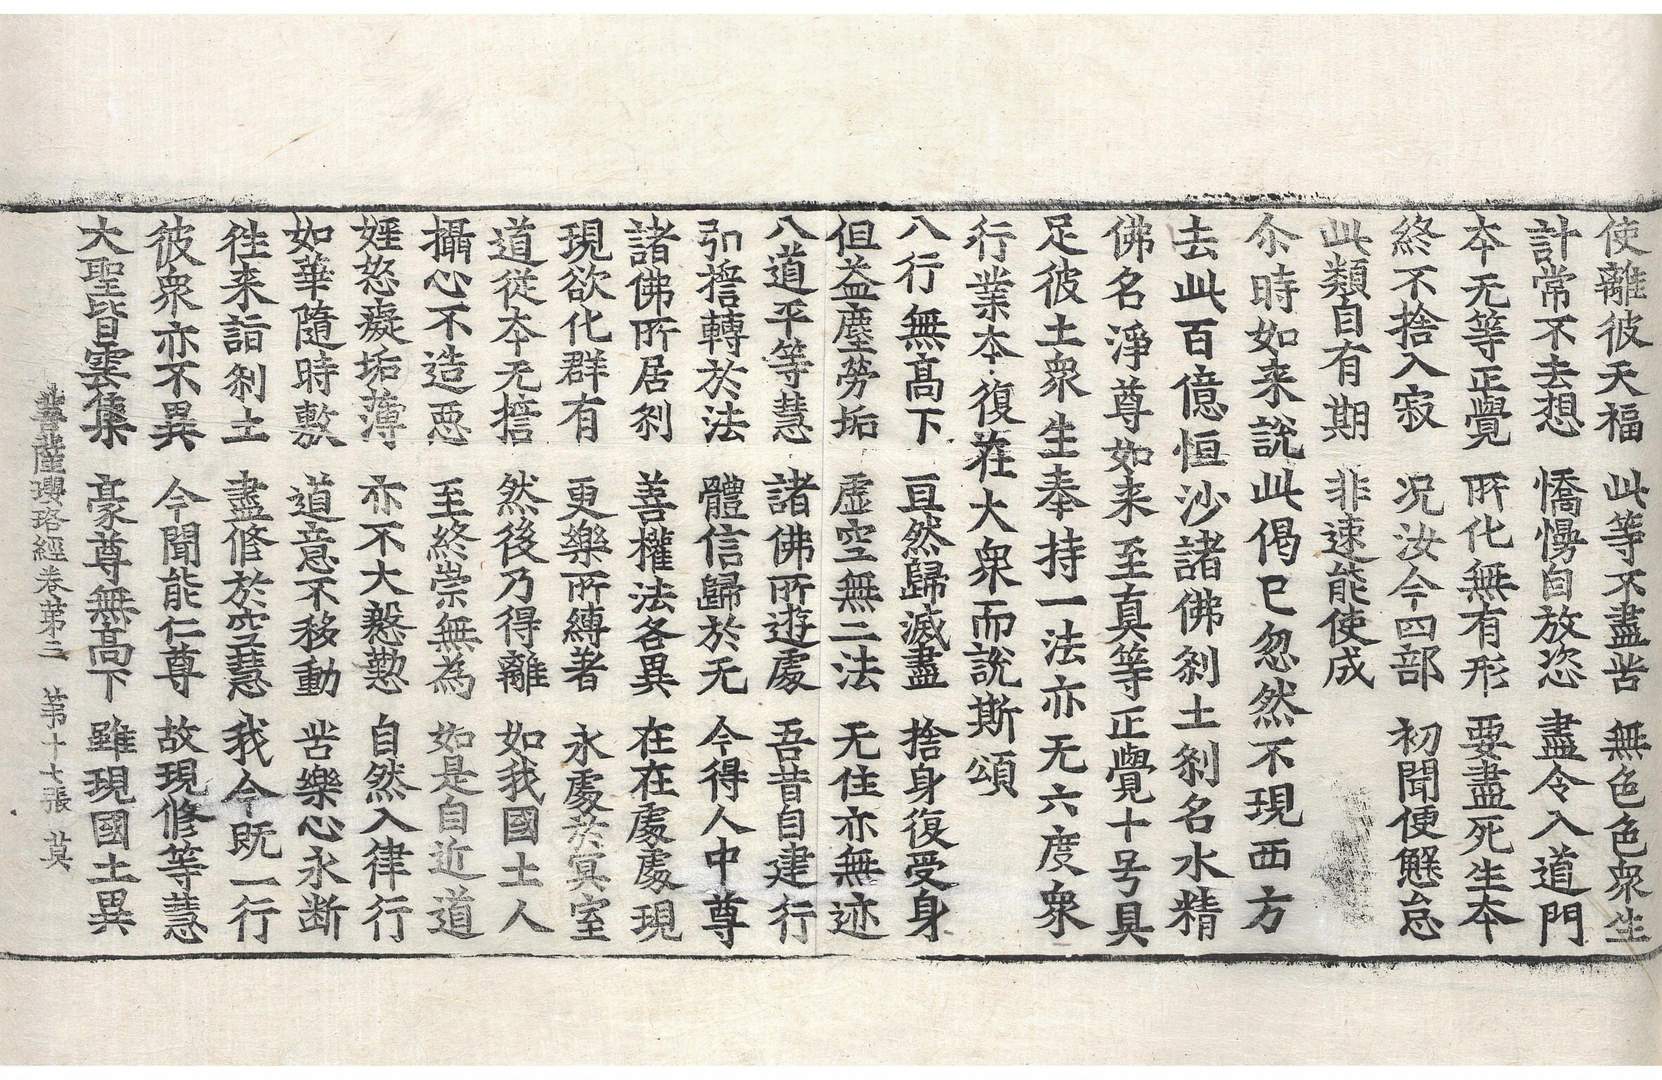 使離彼天福　此等不盡苦　無色色衆生
計常不去想　憍慢自放恣　盡令入道門
本无等正覺　所化無有形　要盡死生本
終不捨入寂　况汝今四部　初聞便懈怠
此類自有期　非速能使成
尒時如来說此偈已忽然不現西方
去此百億恒沙諸佛刹土刹名水精
佛名淨尊如来至真等正覺十号具
足彼土衆生奉持一法亦无六度衆
行業本復在大衆而說斯頌
八行無高下　亘然歸滅盡　捨身復受身
但益塵勞垢　虛空無二法　无住亦無迹
八道平等慧　諸佛所遊處　吾昔自建行
引擔轉於法　體信歸於无　今得人中尊
諸佛所居刹　善權法各異　在在處處現
現欲化群有　更樂所縛著　永處於冥室
道從本无擔　然後乃得離　如我國土人
攝心不造惡　至終崇無為　如是自近道
婬怒癡垢薄　亦不大慇懃　自然入律行
如華隨時敷　道意不移動　苦樂心永断
往来詣刹土　盡修於空慧　我今既一行
彼衆亦不異　今聞能仁尊　故現修等慧
大聖皆雲集　豪尊無高下　雖現國土異
菩薩瓔珞經卷第三　第十七張　莫